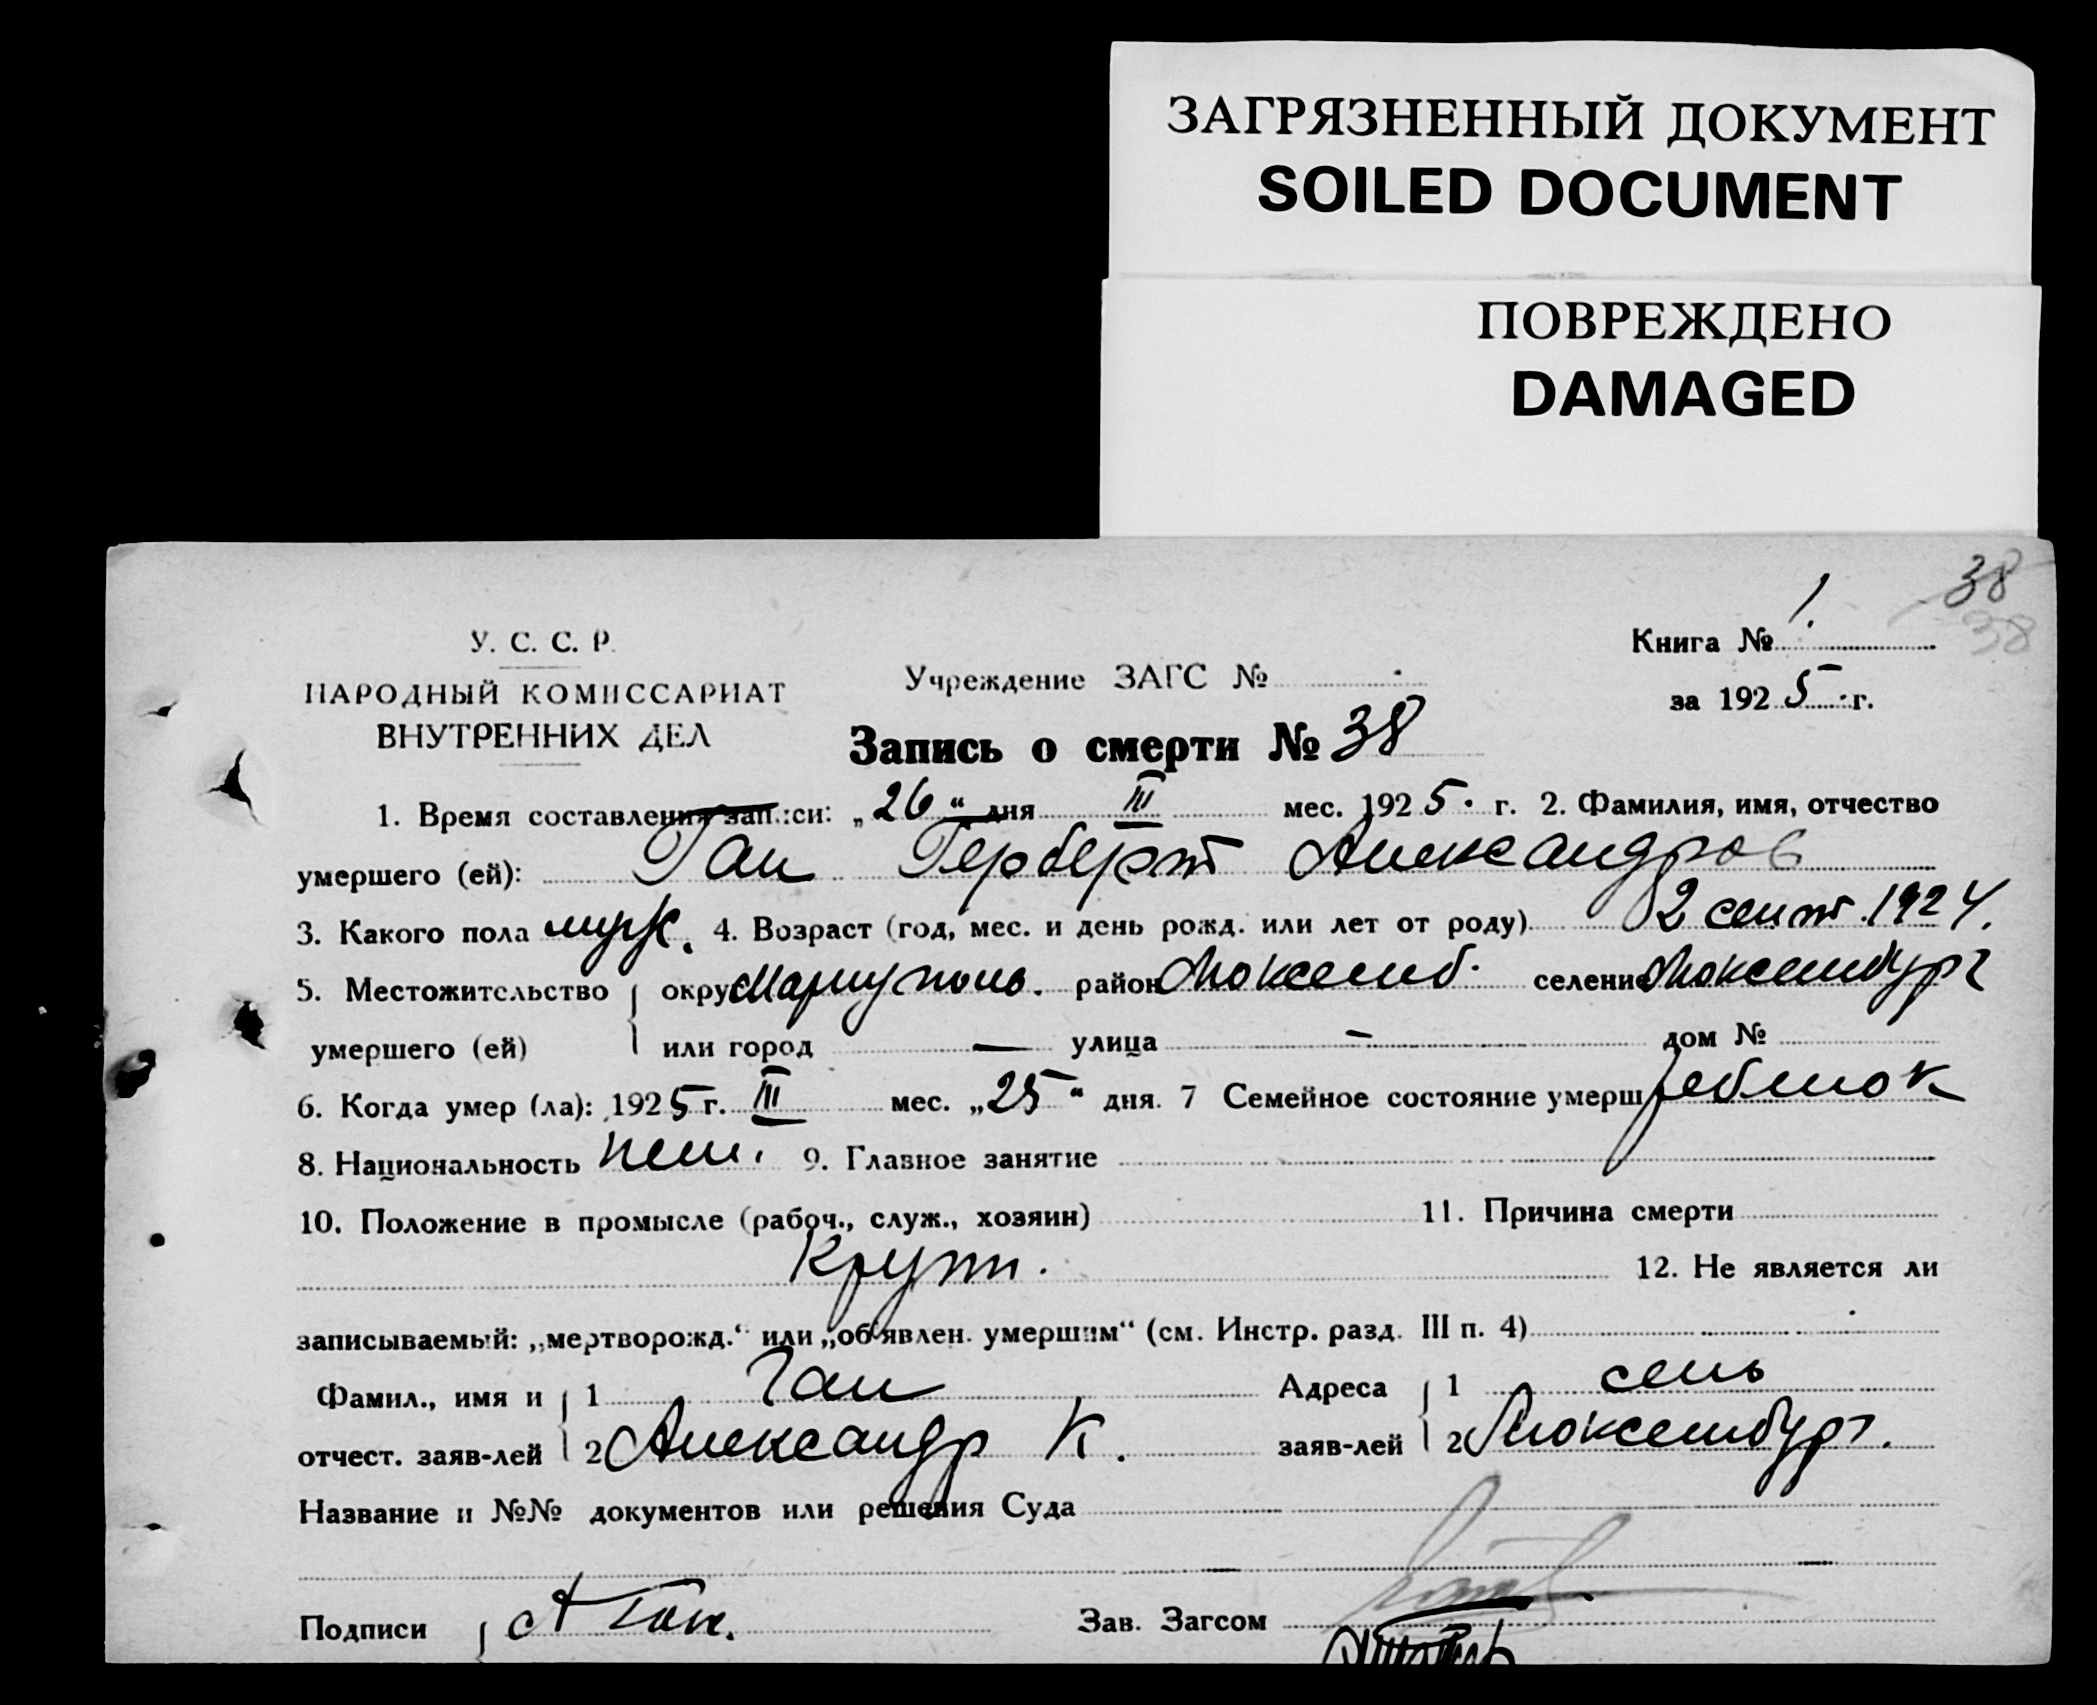 ЗАГРЯЗНЕННЫЙ ДОКУМЕНТ
SOILED DOCUMENT
ПОВРЕЖДЕНО
DAMAGED
38
38
У. С. С. Р.
НАРОДНЫЙ КОМИССАРИАТ
ВНУТРЕННИХ ДЕЛ
Учреждение ЗАГС №
Книга № 1.
за 1925 г.
Запись о смерти № 38
1. Время составления записи: „26“ дня III мес. 1925 г. 2. Фамилия, имя, отчество
умершего (ей): Ган Герберт Александров
3. Какого пола муж. 4. Возраст (год, мес. и день рожд. или лет от роду) 2 сент. 1924.
5. Местожительство округ Мариуполь. район Люксемб. селение Люксембург
умершего (ей) или город — улица — дом №
6. Когда умер (ла): 1925 г. III мес. „25“ дня. 7 Семейное состояние умерш ребенок
8. Национальность нем. 9. Главное занятие
10. Положение в промысле (рабоч., служ., хозяин) 11. Причина смерти
Круп. 12. Не является ли
записываемый: „мертворожд.“ или „об'явлен. умершим“ (см. Инстр. разд. III п. 4)
Фамил., имя и 1 Ган Адреса 1 сель
отчест. заяв-лей 2 Александр К. заяв-лей 2 Люксембург.
Название и №№ документов или решения Суда
Подписи А Ган. Зав. Загсом